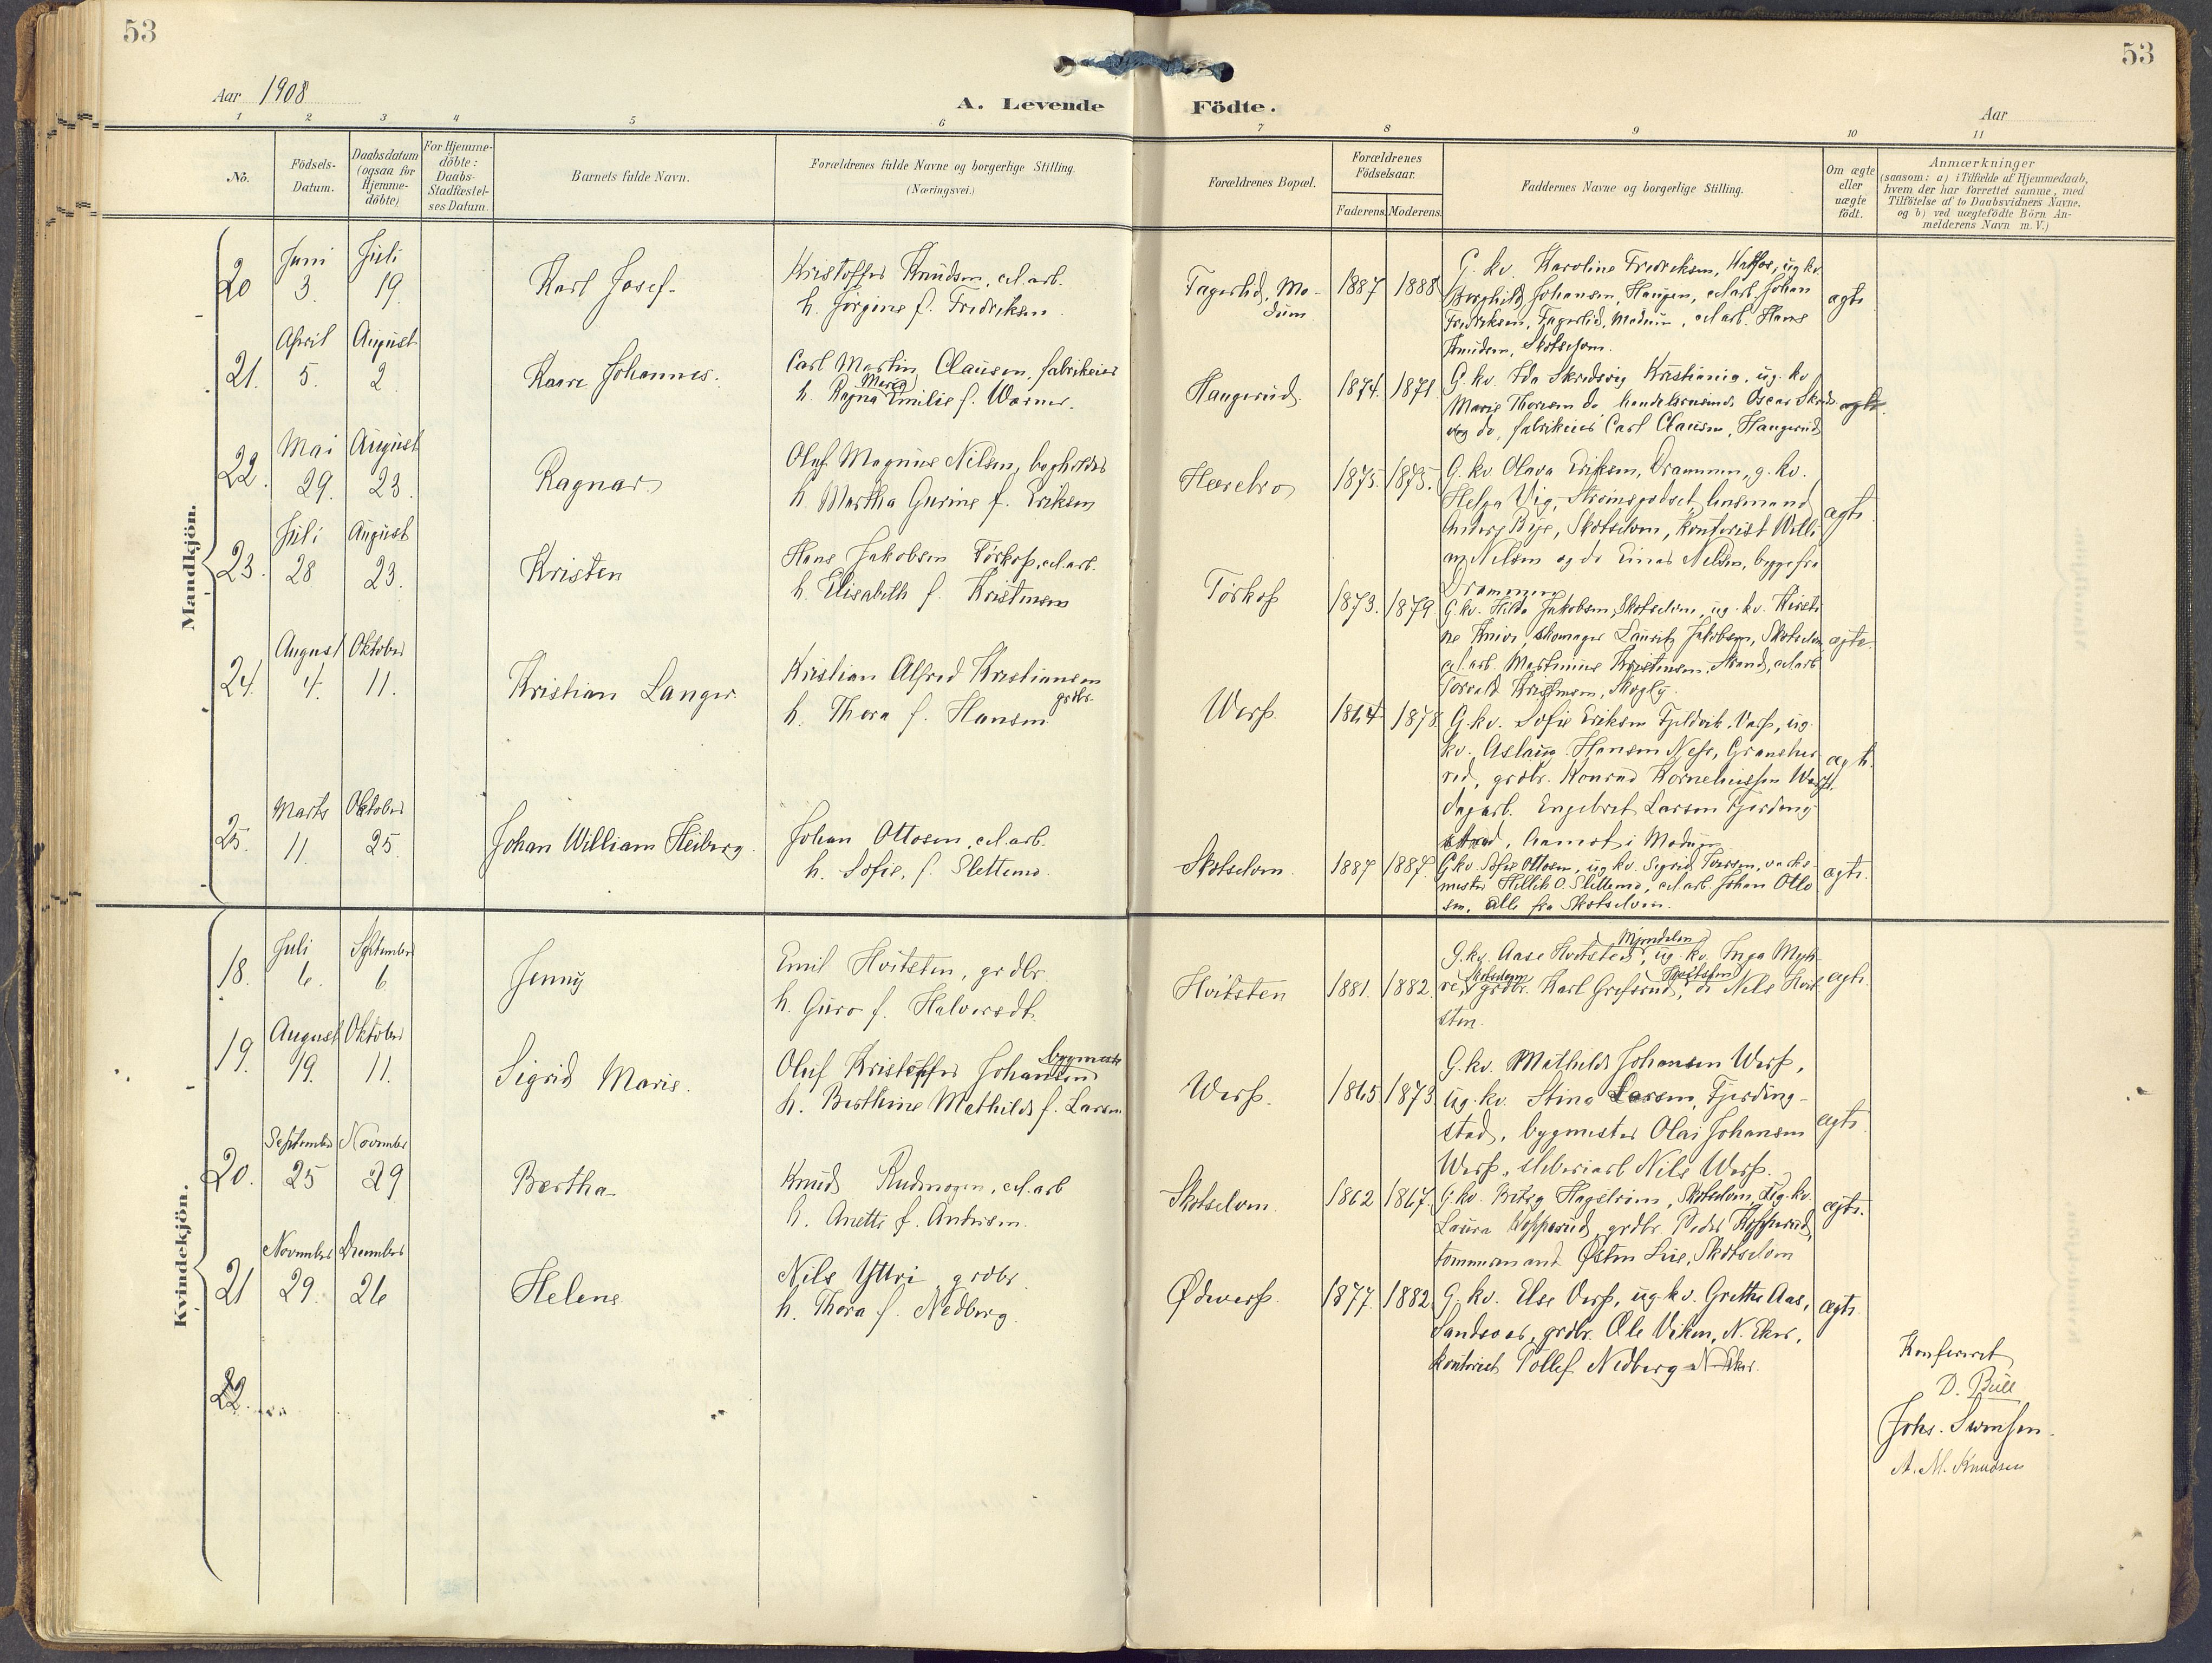 53
53
Aar 1908
A. Levende Födte.
Aar
1 2 3 4 5 6 7 8 9 10 11
No.
Födsels-Datum.
Daabsdatum (ogsaa for Hjemme-döbte)
For Hjemme-döbte: Daabs-Stadfæstel-ses Datum.
Barnets fulde Navn.
Forældrenes fulde Navne og borgerlige Stilling.
(Næringsvei.)
Forældrenes Bopæl.
Forældrenes Födselsaar.
Faderens. Moderens.
Faddernes Navne og borgerlige Stilling.
Om ægte eller uægte födt.
Anmærkninger
(saasom: a) i Tilfælde af Hjemmedaab,
hvem der har forrettet samme, med
Tilföielse af to Daabsvidners Navne.
og b) ved uægtefödte Börn An-
melderens Navn m. V.)
Mandkjön.
20 Juni 3. Juli 19.
Karl Josef.
Kristoffer Knudsen, cel.arb.
h. Jørgine f. Fredriksen
Fagerlid, Mo-
dum
1887 1888
G. kv. Karoline Fredriksen, ug kv.
Borghild Johansen, Haugen, cel.arb. Johan
Fredriksen, Fagerlid, Modum, cel.arb. Hans
Knudsen, Skotselven.
ægte
21. April 5. August 2.
Kaare Johannes.
Carl Martin Clausen, fabrikeier
h. Ragna Emilie f. Warner.
Haugerud
1874. 1871
G. kv. Ida Skredsvig Kristiania, ug. kv
Marie Thoresen do handelsreisende Oscar Skreds-
vig do, fabrikeier Carl Clausen, Haugerud
ægte.
22. Mai 29. August 23.
Ragnar
Oluf Magnus Nilsen, bogholder
h. Martha Gurine f. Eriksen
Horebro
1875. 1875.
G. kv Olava Eriksen, Drammen, g. kv.
Helga Vig, Strømsgodset, lensmand
Anders Bye, Skotselven, kontorist Willi-
am Nelsen og do Einar Nelsen, begge fra
Drammen
ægte
23. Juli 28 August 23.
Kristen
Hans Jakobsen Torkop, cel.arb.
h. Elisabeth f. Kristensen
Torkop
1873. 1879
G. kv. Hilda Jakobsen, Skotselven, ug. kv. Kirsti-
ne Knive, skomager Lauritz Jakobsen, Skotselven
cel.arb. Martinius Kristensen, Strand, cel.arb
Torvald Kristensen, Skogly.
ægte
24. August 4. Oktober 11.
Kristian Langer
Kristian Alfred Kristiansen
grdbr.
h. Thora f. Hansen
Werp.
1864 1878
G. kv. Sofie Eriksen Fjeldvik, Varp, ug.
kv. Aslaug Hansen Næss, Gransher-
red, grdbr. Konrad Korneliussen Werp,
dagarb. Engebret Larsen Fjerding-
stad, Aamot i Modum
ægte.
25. Marts 11. Oktober 25.
Johan William Heiberg
Johan Ottosen, cel.arb.
h. Sofie, f. Slettemo.
Skotselven.
1887 1887.
G. kv. Sofie Ottosen, ug. kv. Sigrid Iversen, verks-
mester Hellik O. Slettemo, cel.arb. Johan Otto-
sen. Alle fra Skotselven.
ægte.
Kvindekjön.
18. Juli 6. September 6
Jenny
Emil Hvitsten, grdbr.
h. Guro f. Halvorsdt.
Hvitsten
1881. 1882.
Mjøndalen
G. kv. Aase Hvitsten, ug. kv. Inga Myh-
Skotselven Hvitsten
re, grdbr. Karl Grefsrud, do Nels Hvit-
sten.
ægte.
19. August 19. Oktober 11.
Sigrid Marie.
bygmester
Oluf Kristoffer Johansen
h. Berthine Mathilde f. Larsen
Werp.
1865 1873
G. kv. Mathilde Johansen Werp,
ug. kv. Stina Larsen, Fjerding-
stad, bygmester Olai Johansen
Werp, sliberiarb Nils Werp.
ægte
20. September 25 November 29
Bertha
Knud Rudmogen, cel.arb
h. Anette f. Andersen.
Skotselven.
1862 1867.
G. kv. Birgit Hagestrøm, Skotselven, ug. kv.
Laura Hopperud, grdbr Peder Hopperud,
tømmermand Østen Lie, Skotselven
ægte.
21 November 29. December 26
Helene
Nils Yttri grdbr.
h. Thora f. Nedberg.
Ødeverp.
1877. 1882.
G. kv. Else Verp, ug. kv. Grethe Aas,
Sandsvær, grdbr. Ole Viken, N. Eker,
kontorist Tollef Nedberg N. Eker.
ægte
22.
Konfereret
D. Bull
Johs. Svensen.
A. M. Knudsen